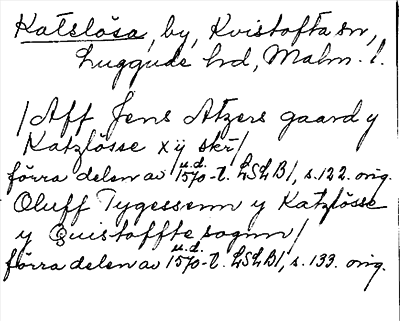 Katslösa, by, Kvistofta sn,
Luggude hd, Malm. l.
/Aff Jens Atzers gaard y
Katzlösse x ij skr/
förra delen av u.d. 1570-t. LSLB1, s. 122. orig.
Oluff Tygessenn y Katzlösse
y Quistoffte sognn/
förra delen av u.d. 1570-t. LSLB1, s. 133. orig.